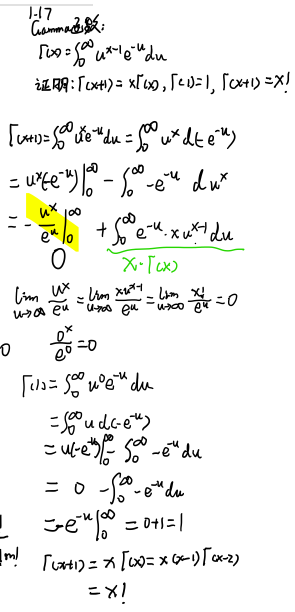 1.17
Gamma函数:
Γ(x)=∫₀^∞ u^{x-1}e^{-u}du
证明:Γ(x+1)=xΓ(x), Γ(1)=1, Γ(x+1)=x!
Γ(x+1)=∫₀^∞ u^x e^{-u}du=∫₀^∞ u^x d(-e^{-u})
=u^x(-e^{-u})|₀^∞ - ∫₀^∞ -e^{-u} du^x
=-u^x/e^u|₀^∞ + ∫₀^∞ e^{-u}·xu^{x-1}du
0 x·Γ(x)
lim_{u→∞} u^x/e^u=lim_{u→∞} xu^{x-1}/e^u=lim_{u→∞} x!/e^u=0
0 0^x/e^0=0
Γ(1)=∫₀^∞ u⁰e^{-u}du
=∫₀^∞ u d(-e^{-u})
=u(-e^{-u})|₀^∞ - ∫₀^∞ -e^{-u}du
= 0 -∫₀^∞ -e^{-u}du
=-e^{-u}|₀^∞ = 0+1=1
m! Γ(x+1)=xΓ(x)=x(x-1)Γ(x-2)
=x!